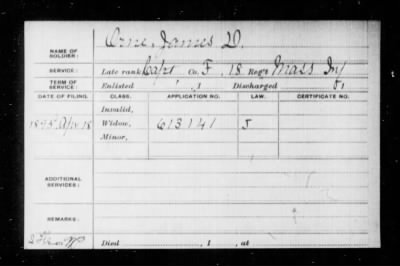 NAME OF SOLDIER: Orne, James D.
SERVICE: Late rank Capt Co. F, 18 Reg't Mass Inf
TERM OF SERVICE: Enlisted , 1 Discharged , 1
DATE OF FILING. CLASS. APPLICATION NO. LAW. CERTIFICATE NO.
Invalid,
1895 Apr 18 Widow, 613141 J
Minor,
ADDITIONAL SERVICES:
REMARKS:
Died , 1 , at